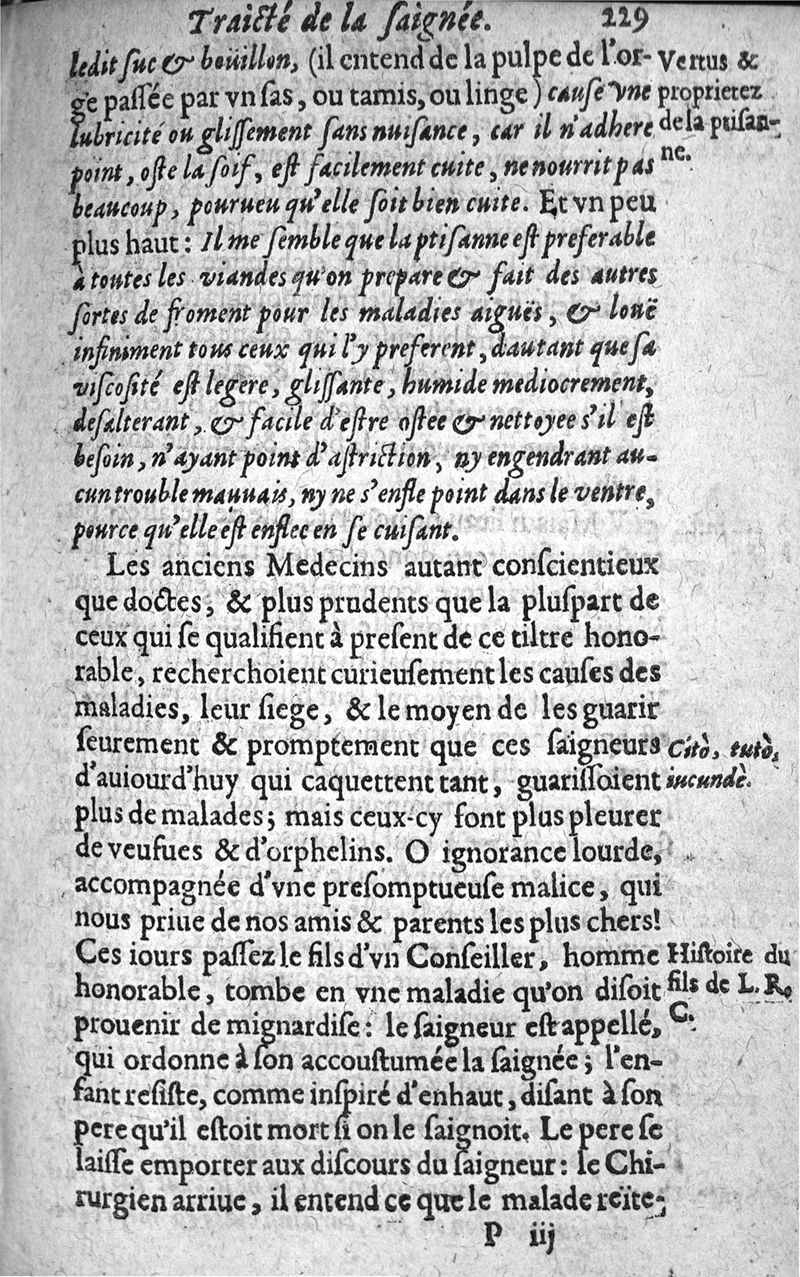 Traicté de la ſaignée. 229
ledit ſuc & boüillon, (il entend de la pulpe de l'or-
ge paſſée par vn ſas, ou tamis, ou linge) cauſe vne
lubricité ou gliſſement ſans nuiſance, car il n'adhere
point, oſte la ſoif, eſt facilement cuite, ne nourrit pas
beaucoup, pourueu qu'elle ſoit bien cuite. Et vn peu
plus haut: Il me ſemble que la ptiſanne eſt preferable
à toutes les viandes qu'on prepare & fait des autres
ſortes de froment pour les maladies aiguës, & louë
infiniment tous ceux qui l'y preferent, dautant que ſa
viſcoſité eſt legere, gliſſante, humide mediocrement,
deſalterant, & facile d'eſtre oſtee & nettoyee s'il eſt
beſoin, n'ayant point d'aſtriction, ny engendrant au-
cun trouble mauuais, ny ne s'enfle point dans le ventre,
pource qu'elle eſt enflee en ſe cuiſant.
Vertus &
proprietez
de la ptiſan-
ne.
Les anciens Medecins autant conſcientieux
que doctes, & plus prudents que la pluſpart de
ceux qui ſe qualifient à preſent de ce tiltre hono-
rable, recherchoient curieuſement les cauſes des
maladies, leur ſiege, & le moyen de les guarir
ſeurement & promptement que ces ſaigneurs
d'auiourd'huy qui caquettent tant, guariſſoient
plus de malades; mais ceux-cy font plus pleurer
de veufues & d'orphelins. O ignorance lourde,
accompagnée d'vne preſomptueuſe malice, qui
nous priue de nos amis & parents les plus chers!
Citò, tutò,
iucundè.
Ces iours paſſez le fils d'vn Conſeiller, homme
honorable, tombe en vne maladie qu'on diſoit
prouenir de mignardiſe: le ſaigneur eſt appellé,
qui ordonne à ſon accouſtumée la ſaignée; l'en-
fant reſiſte, comme inſpiré d'enhaut, diſant à ſon
pere qu'il eſtoit mort ſi on le ſaignoit. Le pere ſe
laiſſe emporter aux diſcours du ſaigneur: le Chi-
rurgien arriue, il entend ce que le malade reïte-
Hiſtoire du
fils de L. R.
C.
P iij